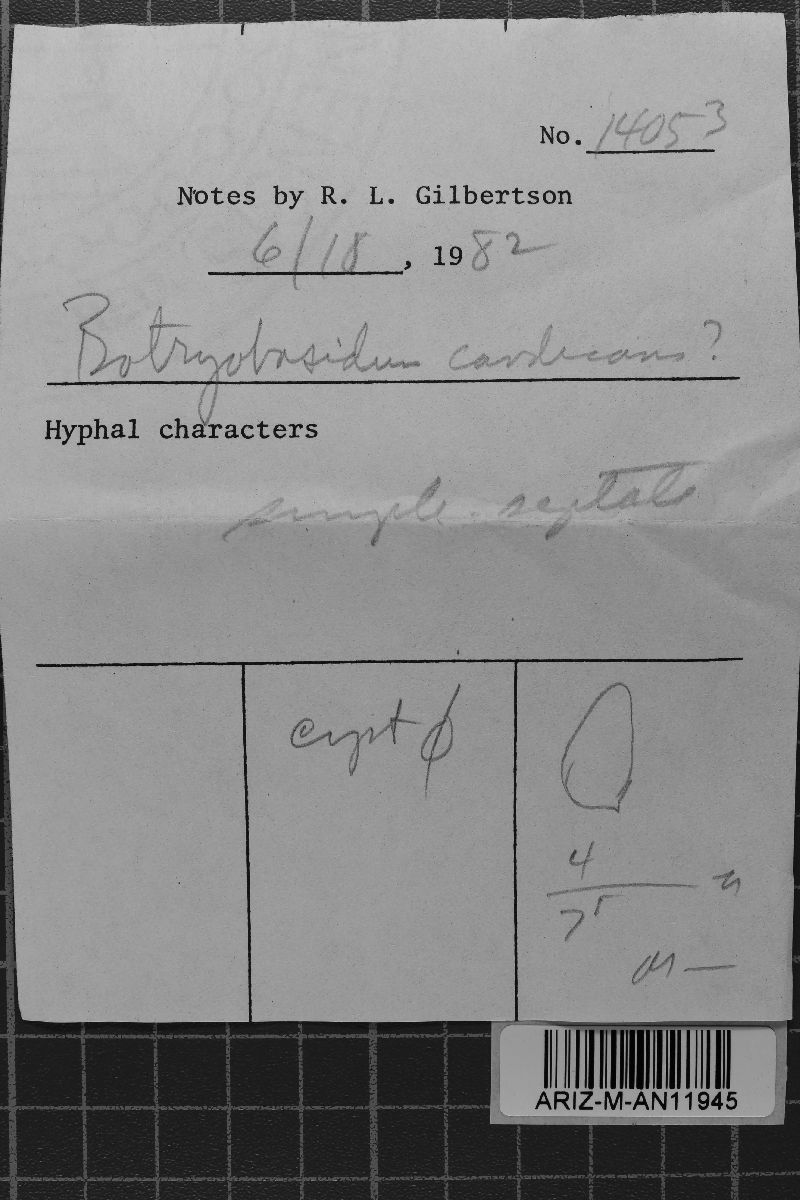 No. 14053
Notes by R. L. Gilbertson
6/18, 1982
Botryobasidium candicans?
Hyphal characters
simple-septate
cyst ϕ
4
7
m –
ARIZ-M-AN11945